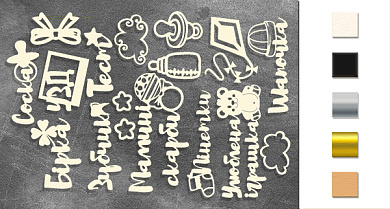 Соска
Бірка
УЗД
Зубчик
Тест
Мамині
скарби
Пінетки
Улюблена
іграшка
Шапочка